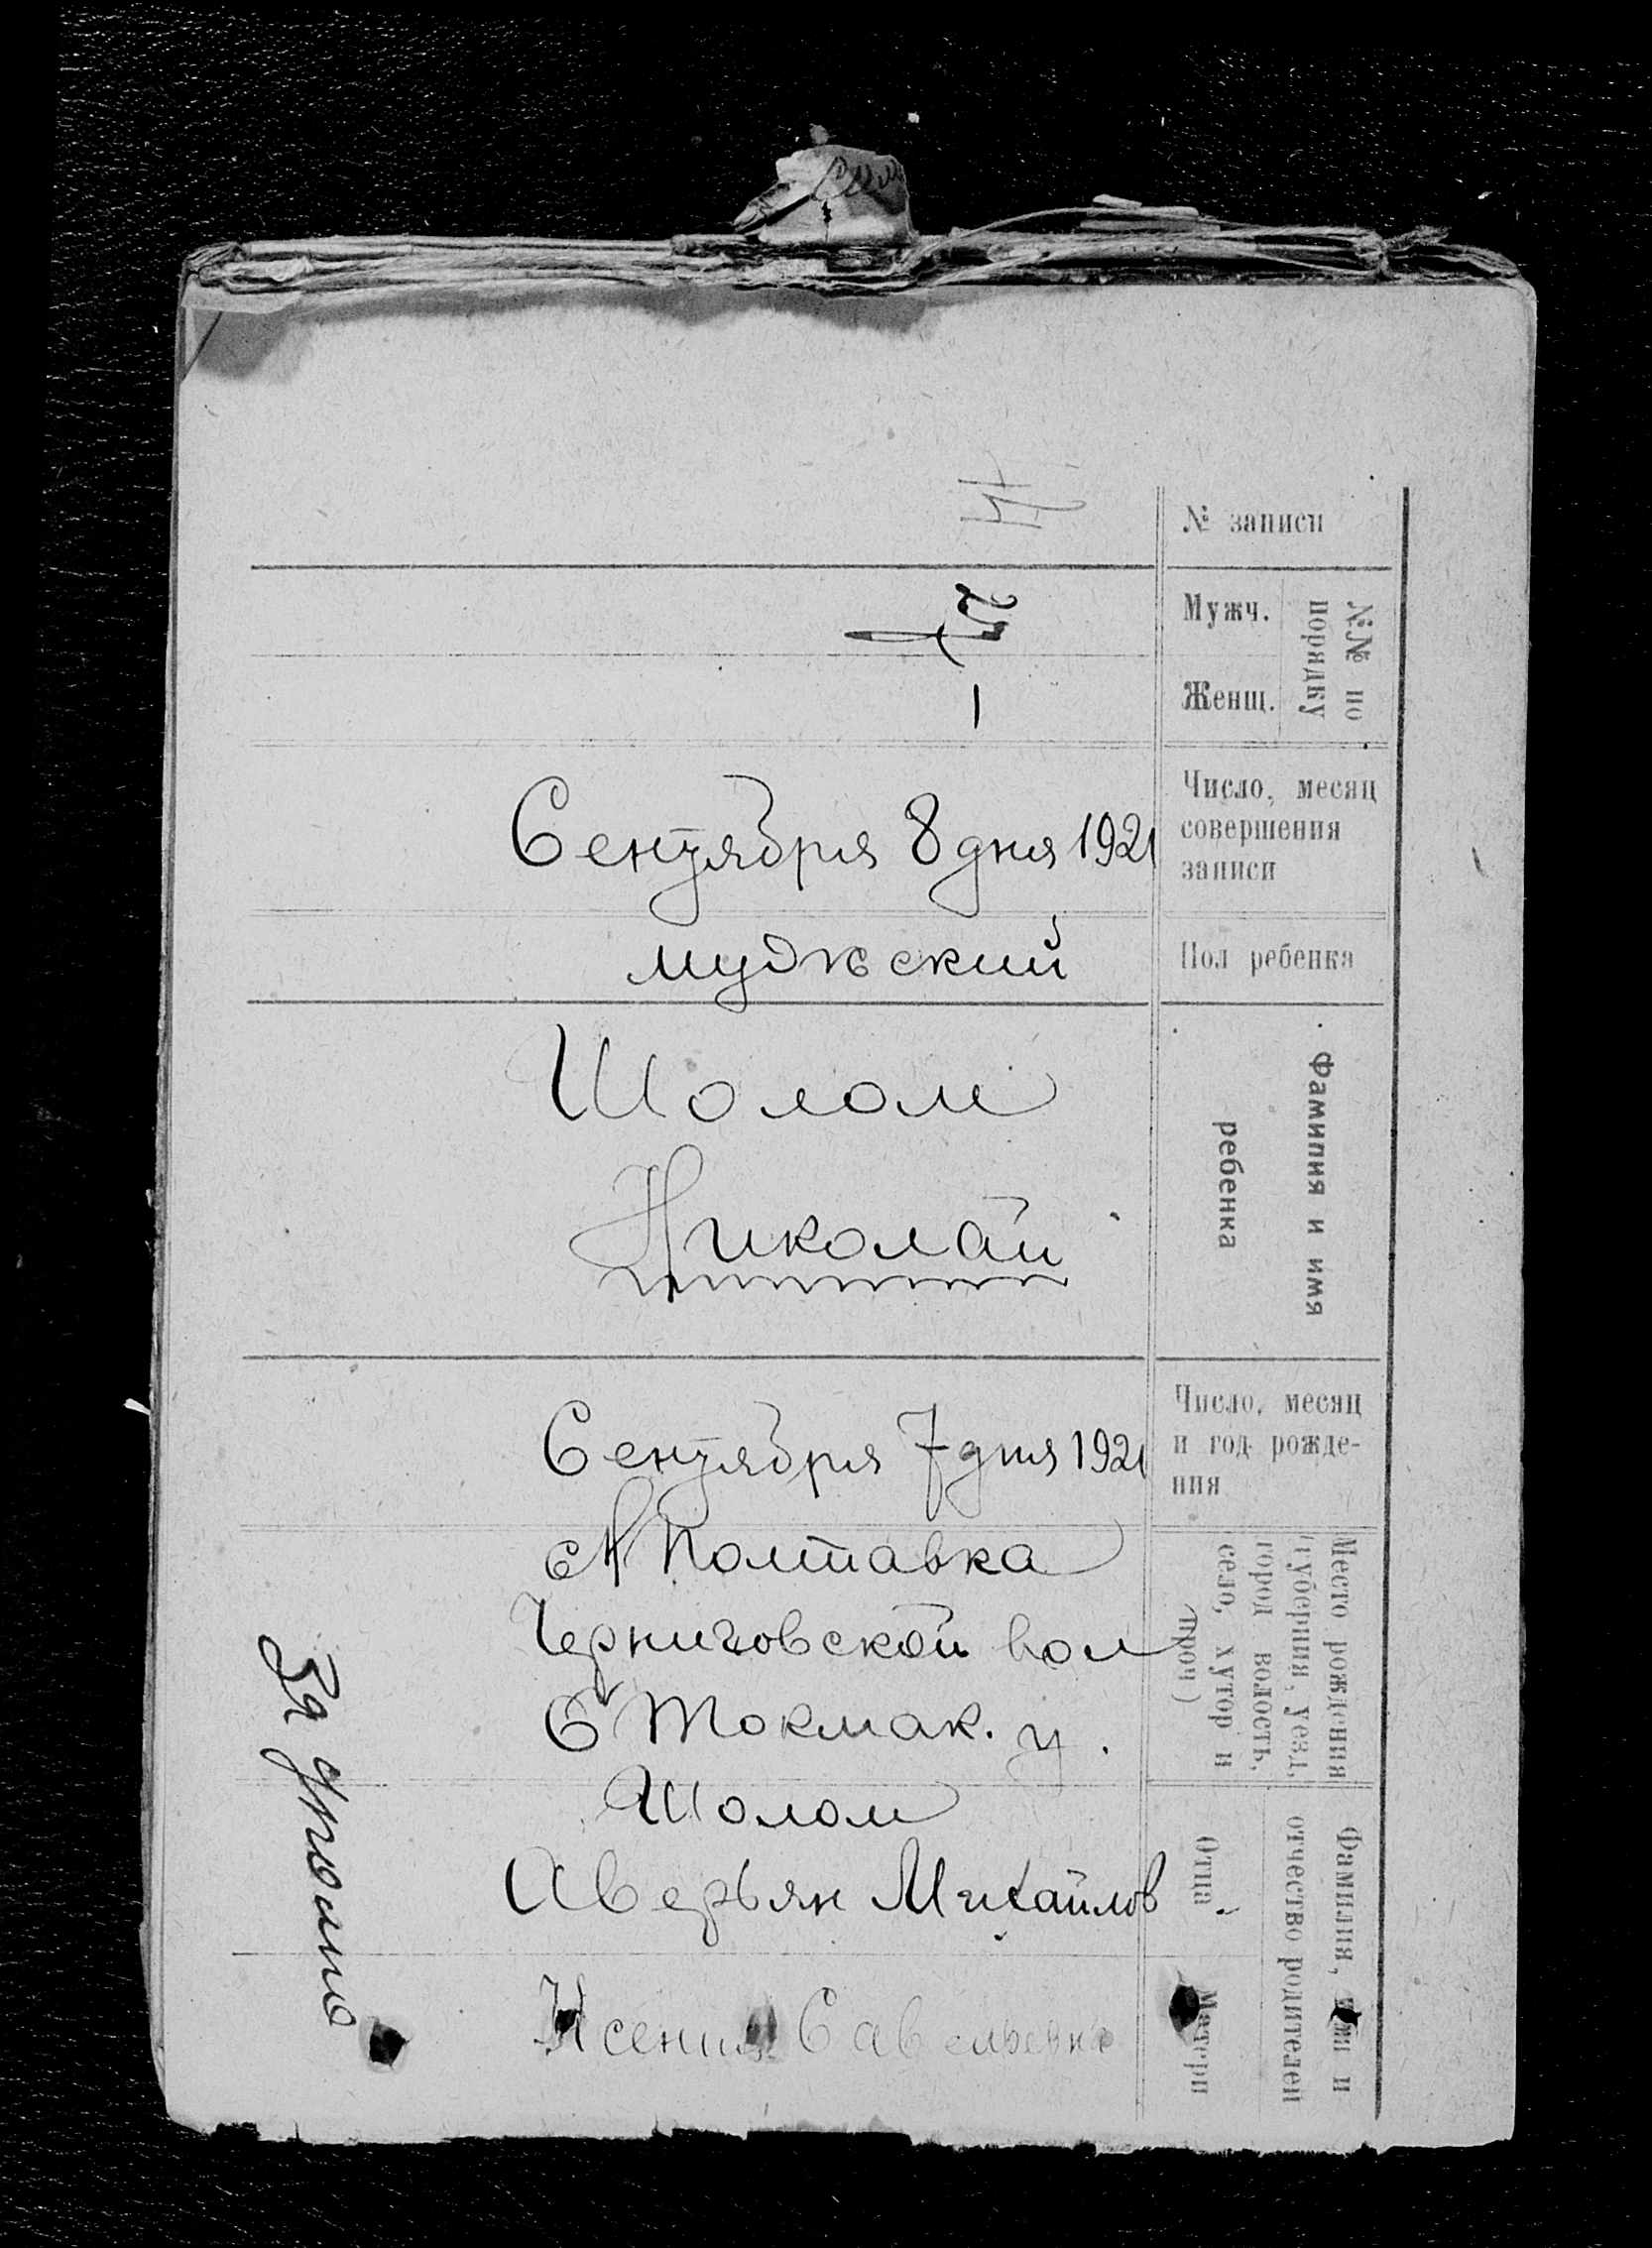 № записи
№№ по порядку
Мужч.
Женщ.
1
Число, месяц
совершения
записи
Сентября 8 дня 1921
Пол ребенка
мужский
Фамилия и имя
ребенка
Шолом
Николай
Число, месяц
и год рожде-
ния
Сентября 7 дня 1921
Место рождения
(губерния, уезд,
город волость,
село, хутор и
проч)
с Н Полтавка
Черниговской вол
Б Токмак. у.
Фамилия, имя и
отчество родителей
Отца
Шолом
Аверьян Михайлов
Матери
Ксения Савельевна